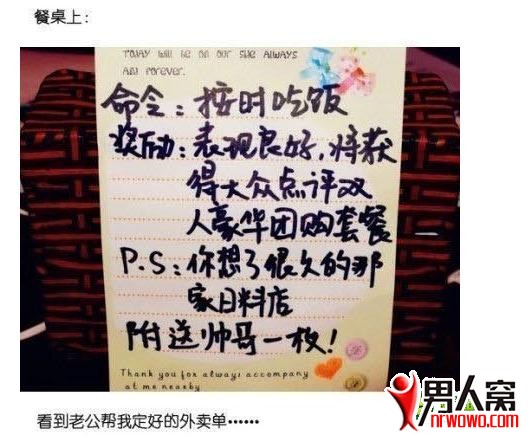 餐桌上：
TODAY will be on our side ALWAYS
AND FOREVER.
命令：按时吃饭
奖励：表现良好，将获
得大众点评双
人豪华团购套餐
P.S：你想了很久的那
家日料店
附送帅哥一枚！
Thank you for always accompany
at me nearby
男人窝
nrwowo.com
看到老公帮我定好的外卖单……